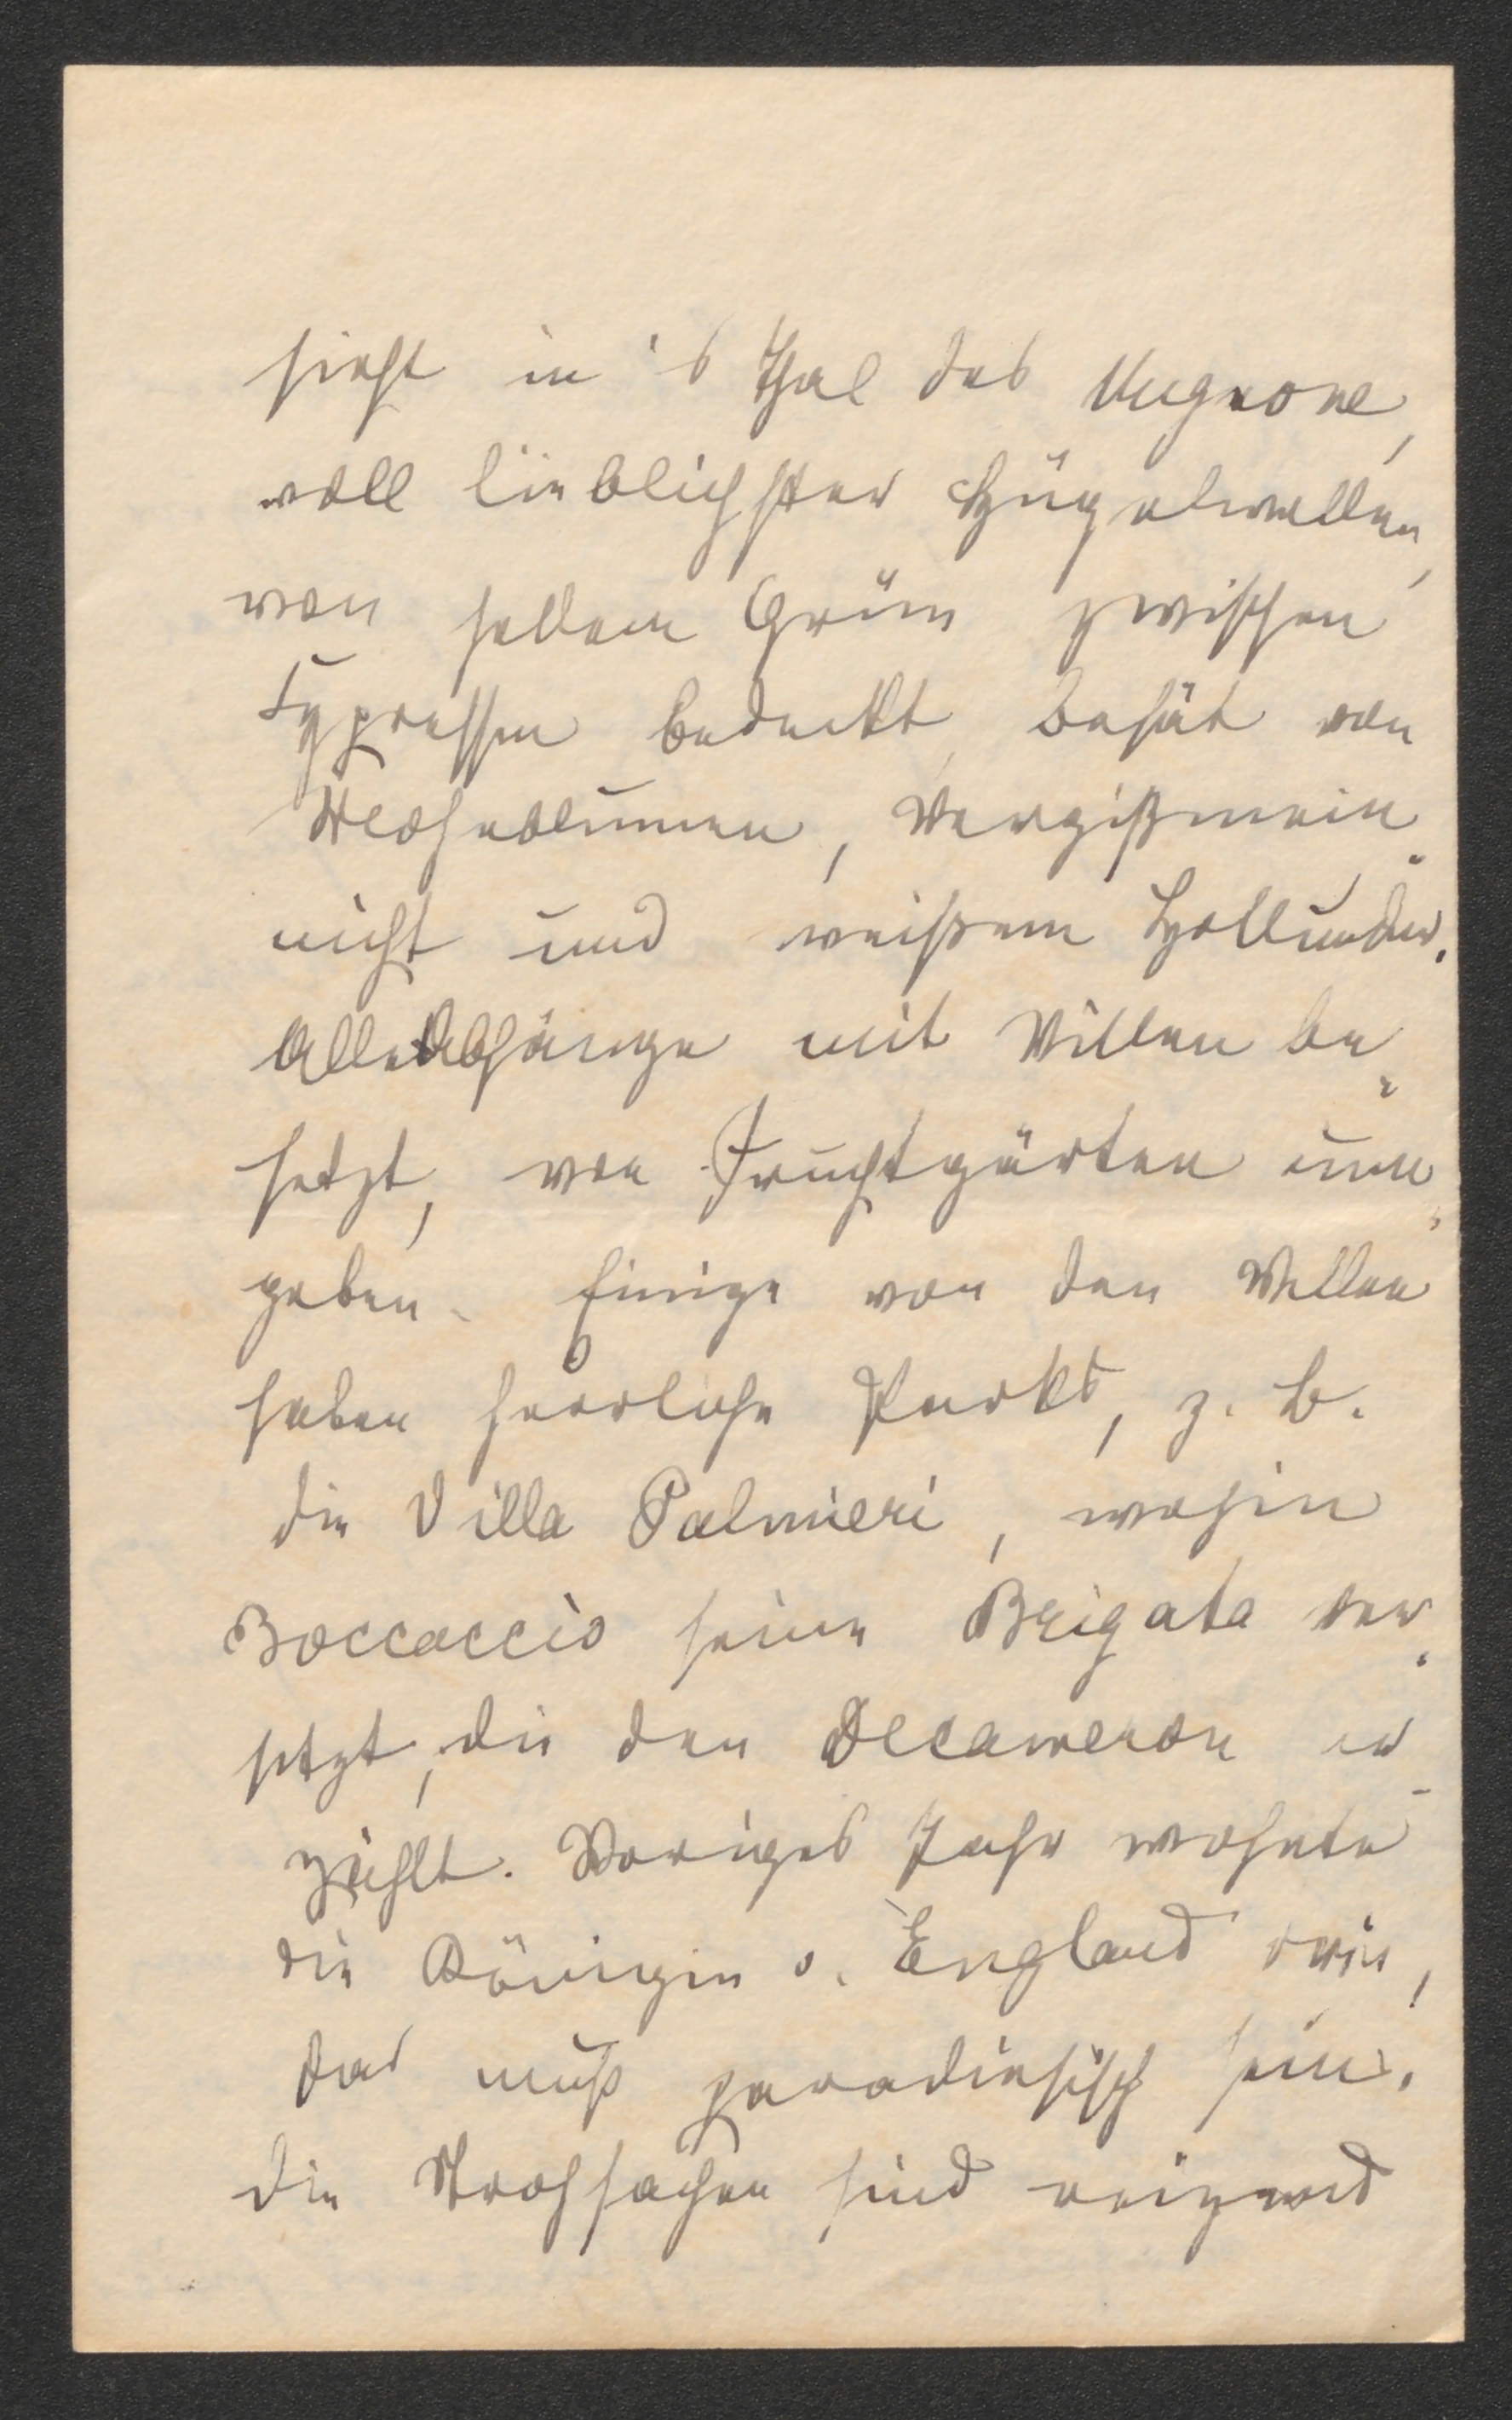 sieht in's Thal des Mugnone,
voll lieblichster Hügelwellen,
von hellem Grün zwischen
Cypressen bedeckt, besät von
Mohnblumen, Vergißmein-
nicht und weißem Hollunder.
Alle Abhänge mit Villen be-
setzt, von Fruchtgärten um-
geben. Einige von den Villen
haben herrliche Parks, z. B.
die Villa Palmieri, wohin
Boccaccio seine Brigata ver-
setzt, die den Decameron er-
zählt. Voriges Jahr wohnte
die Königin v. England drin,
das muß paradiesisch sein.
Die Strohsachen sind reizend